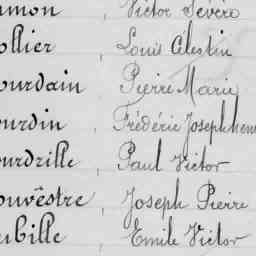 Victor Sévère
ollier, Louis Célestin
ourdain, Pierre Marie
ourdin, Frédéric Joseph hen
ourdville, Paul Victor
ouvêstre, Joseph Pierre
ubille, Emile Victor